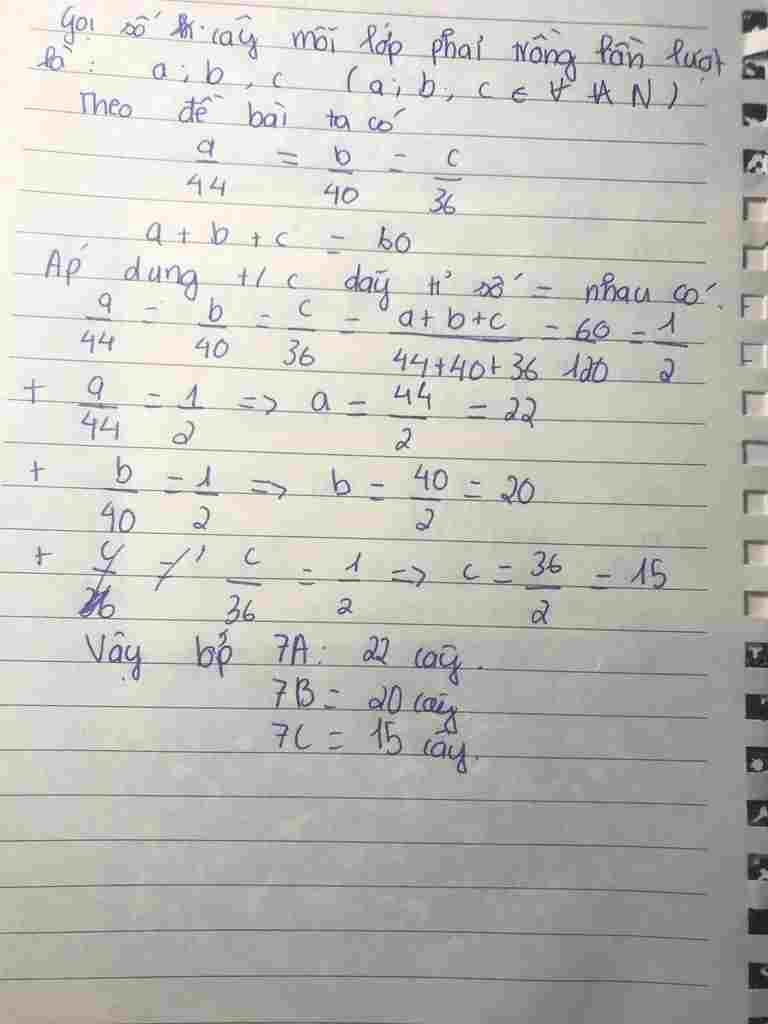 Gọi số cây mỗi lớp phải trồng lần lượt
là : a ; b , c ( a ; b , c ∈ N )
Theo đề bài ta có
a/44 = b/40 = c/36
a + b + c = 60
Áp dung t/c dãy tỉ số = nhau có.
a/44 = b/40 = c/36 = a+b+c/44+40+36 = 60/120 = 1/2
+ a/44 = 1/2 => a = 44/2 = 22
+ b/40 = 1/2 => b = 40/2 = 20
+ c/36 = 1/2 => c = 36/2 = 15
Vậy 7A : 22 cây .
7B = 20 cây
7C = 15 cây.